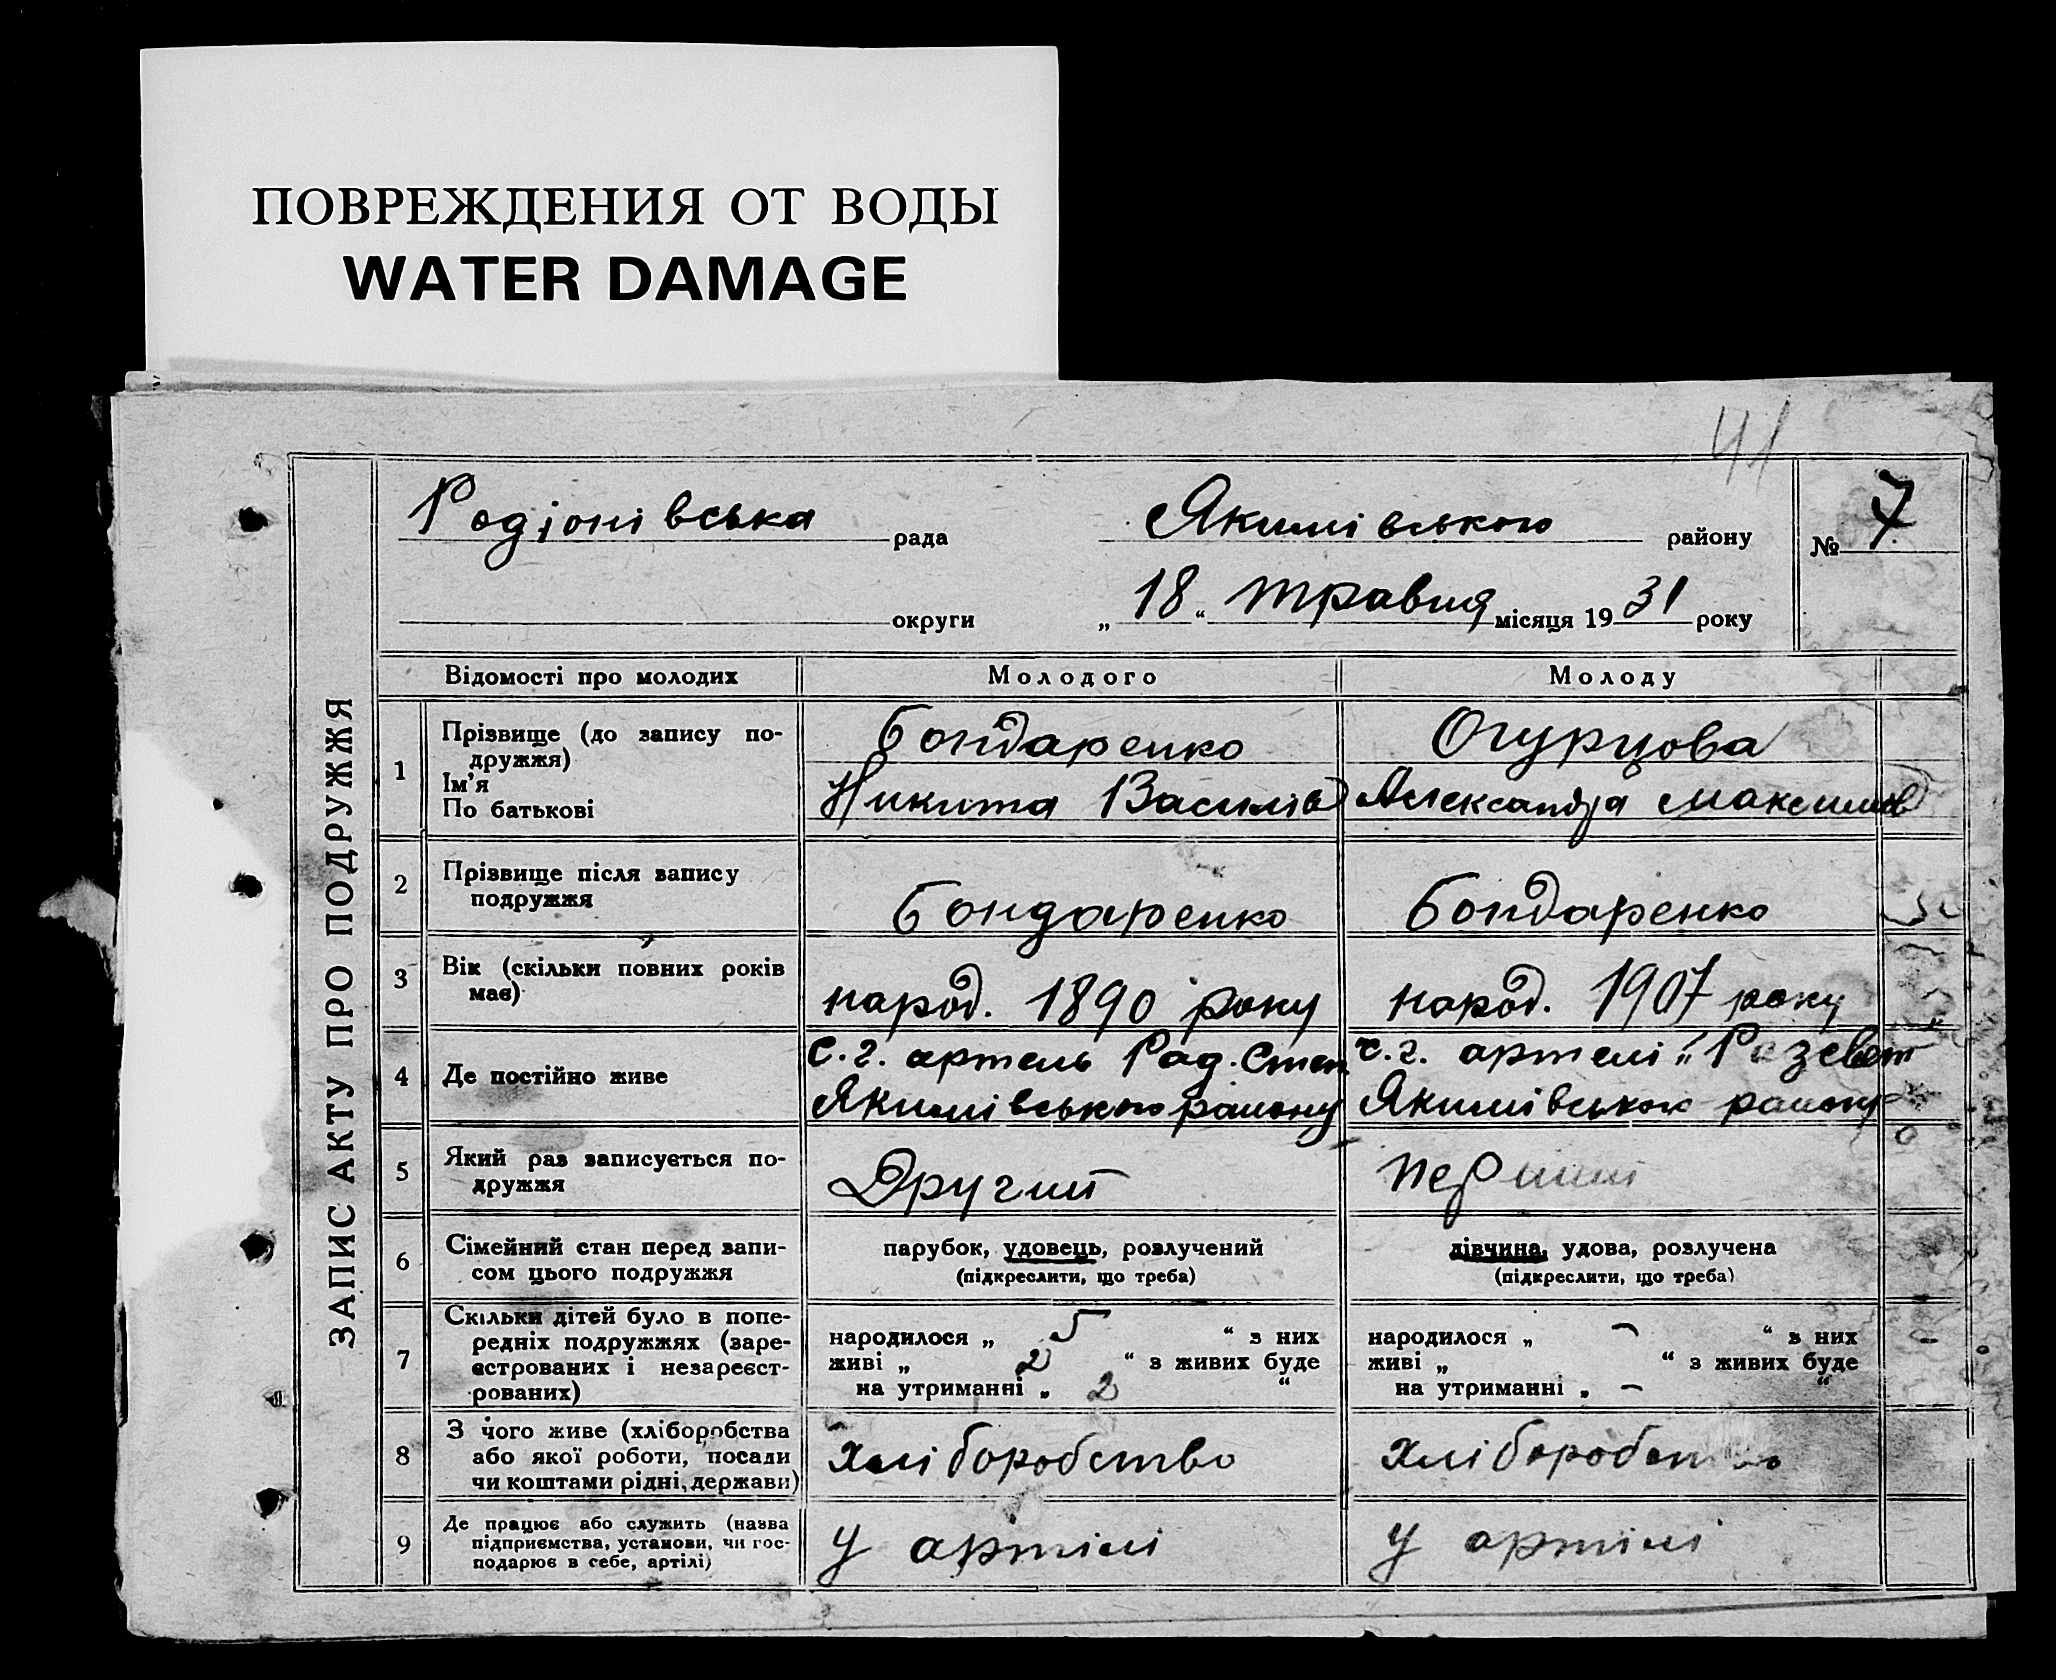 ПОВРЕЖДЕНИЯ ОТ ВОДЫ
WATER DAMAGE
41
ЗАПИС АКТУ ПРО ПОДРУЖЖЯ
Родіонівська рада Якимівського району № 7
округи „ 18 “ травня місяця 1931 року
Відомості про молодих Молодого Молоду
1 Прізвище (до запису по-
дружжя)
Ім'я
По батькові
Бондаренко
Никита Василів
Огурцова
Александра Максимів
2 Прізвище після запису
подружжя
Бондаренко
Бондаренко
3 Вік (скільки повних років
має)
народ. 1890 року
народ. 1907 року
4 Де постійно живе
с.г. артель Рад. Степ
Якимівського району
с.г. артелі „Розсвет“
Якимівського району
5 Який раз записується по-
дружжя
Другий
перший
6 Сімейний стан перед запи-
сом цього подружжя
парубок, удовець, розлучений
(підкреслити, що треба)
дівчина, удова, розлучена
(підкреслити, що треба)
7 Скільки дітей було в попе-
редніх подружжях (заре-
єстрованих і незареєст-
рованих)
народилося „ 5 “ з них
живі „ 2 “ з живих буде
на утриманні „ 2 “
народилося „ – “ з них
живі „ “ з живих буде
на утриманні „ – “
8 З чого живе (хліборобства
або якої роботи, посади
чи коштами рідні, держави)
хліборобство
хліборобство
9 Де працює або служить (назва
підприємства, установи, чи гос-
подарює в себе, артілі)
У артілі
У артілі